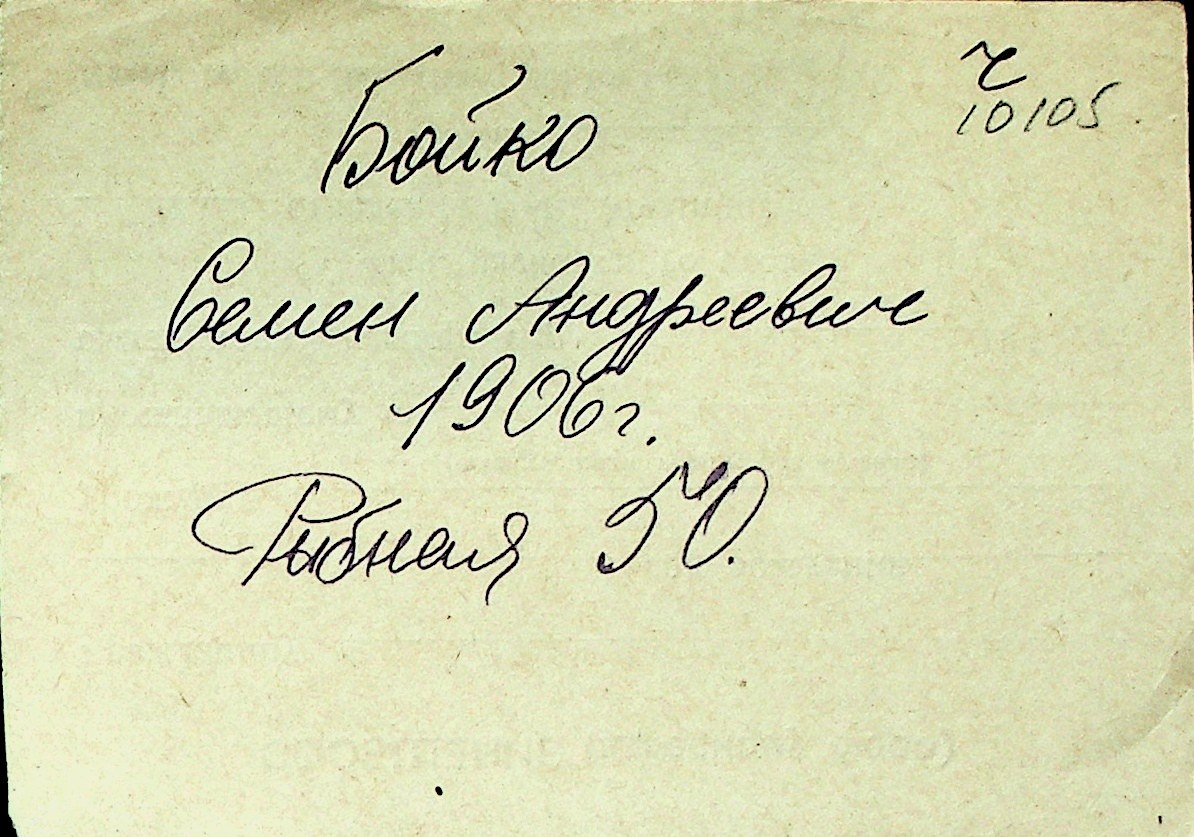 ч
10105
Бойко
Семен Андреевич
1906г.
Рыбная 50.